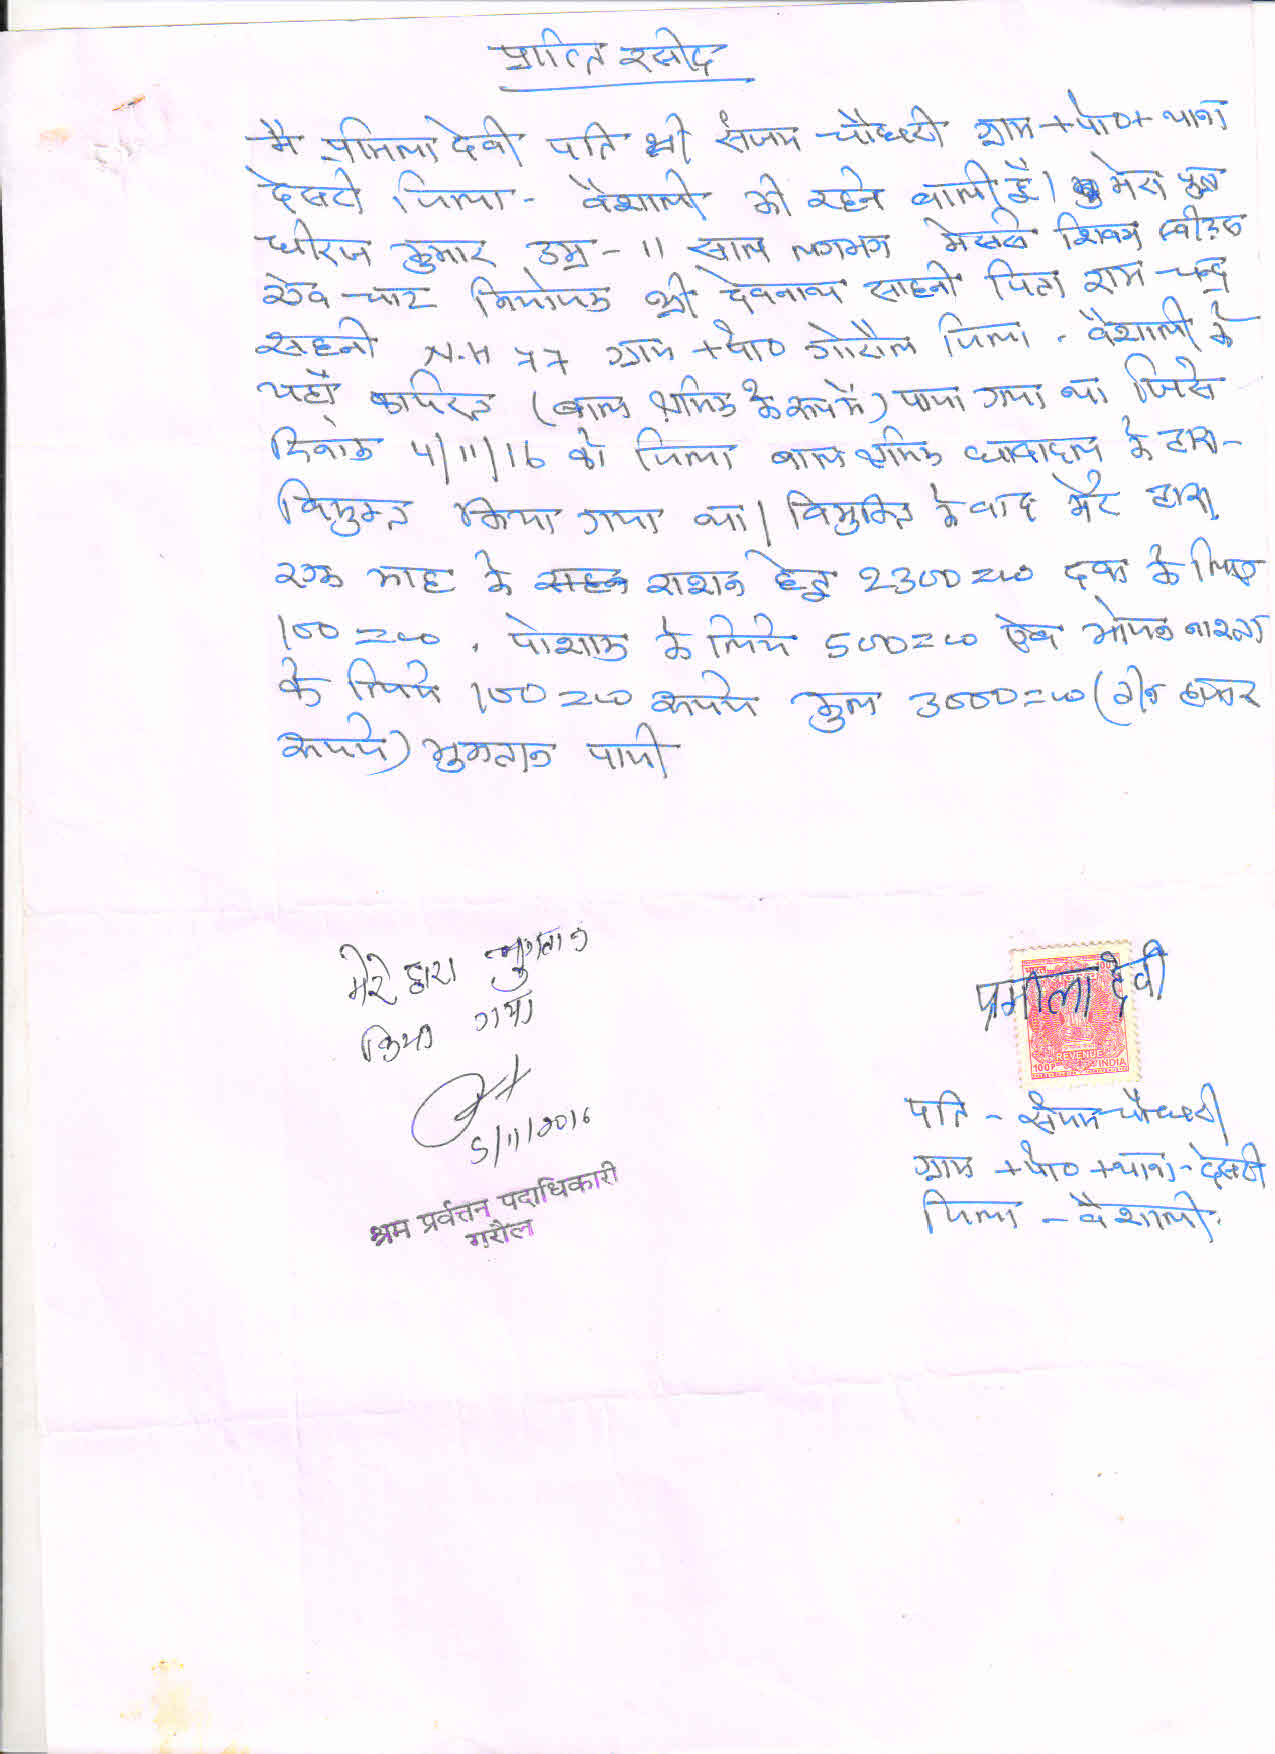 प्राप्ति रसीद
मै प्रमिला देवी पति श्री संजय चौधरी ग्राम +पो०+ थाना
देसरी जिला - वैशाली की रहने वाली हूँ। मेरा पुत्र
धीरज कुमार उम्र - 11 साल लगभग मेसर्स शिवम स्वीट्स
एवं चाट नियोजक श्री देवनाथ साहनी पिता राम चन्द्र
साहनी N.H 77 ग्राम +पो० गोरौल जिला - वैशाली के
यहाँ कार्यरत (बाल श्रमिक के रूप में) पाया गया था जिसे
दिनांक 4/11/16 को जिला बाल श्रमिक धावादल के द्वारा
विमुक्त किया गया था। विमुक्ति के बाद मेरे द्वारा
एक माह के राशन हेतु 2300=00 दवा के लिए
100=00, पोशाक के लिये 500=00 एवं भोजन नाश्ता
के लिये 100=00 रूपये कुल 3000=00 (तीन हजार
रूपये) भुगतान पायी
मेरे द्वारा भुगतान
किया गया
5/11/2016
श्रम प्रर्वत्तन पदाधिकारी
गरौल
प्रमीला देवी
REVENUE
100P INDIA
पति - संजय चौधरी
ग्राम +पो० +थाना - देसरी
जिला - वैशाली.